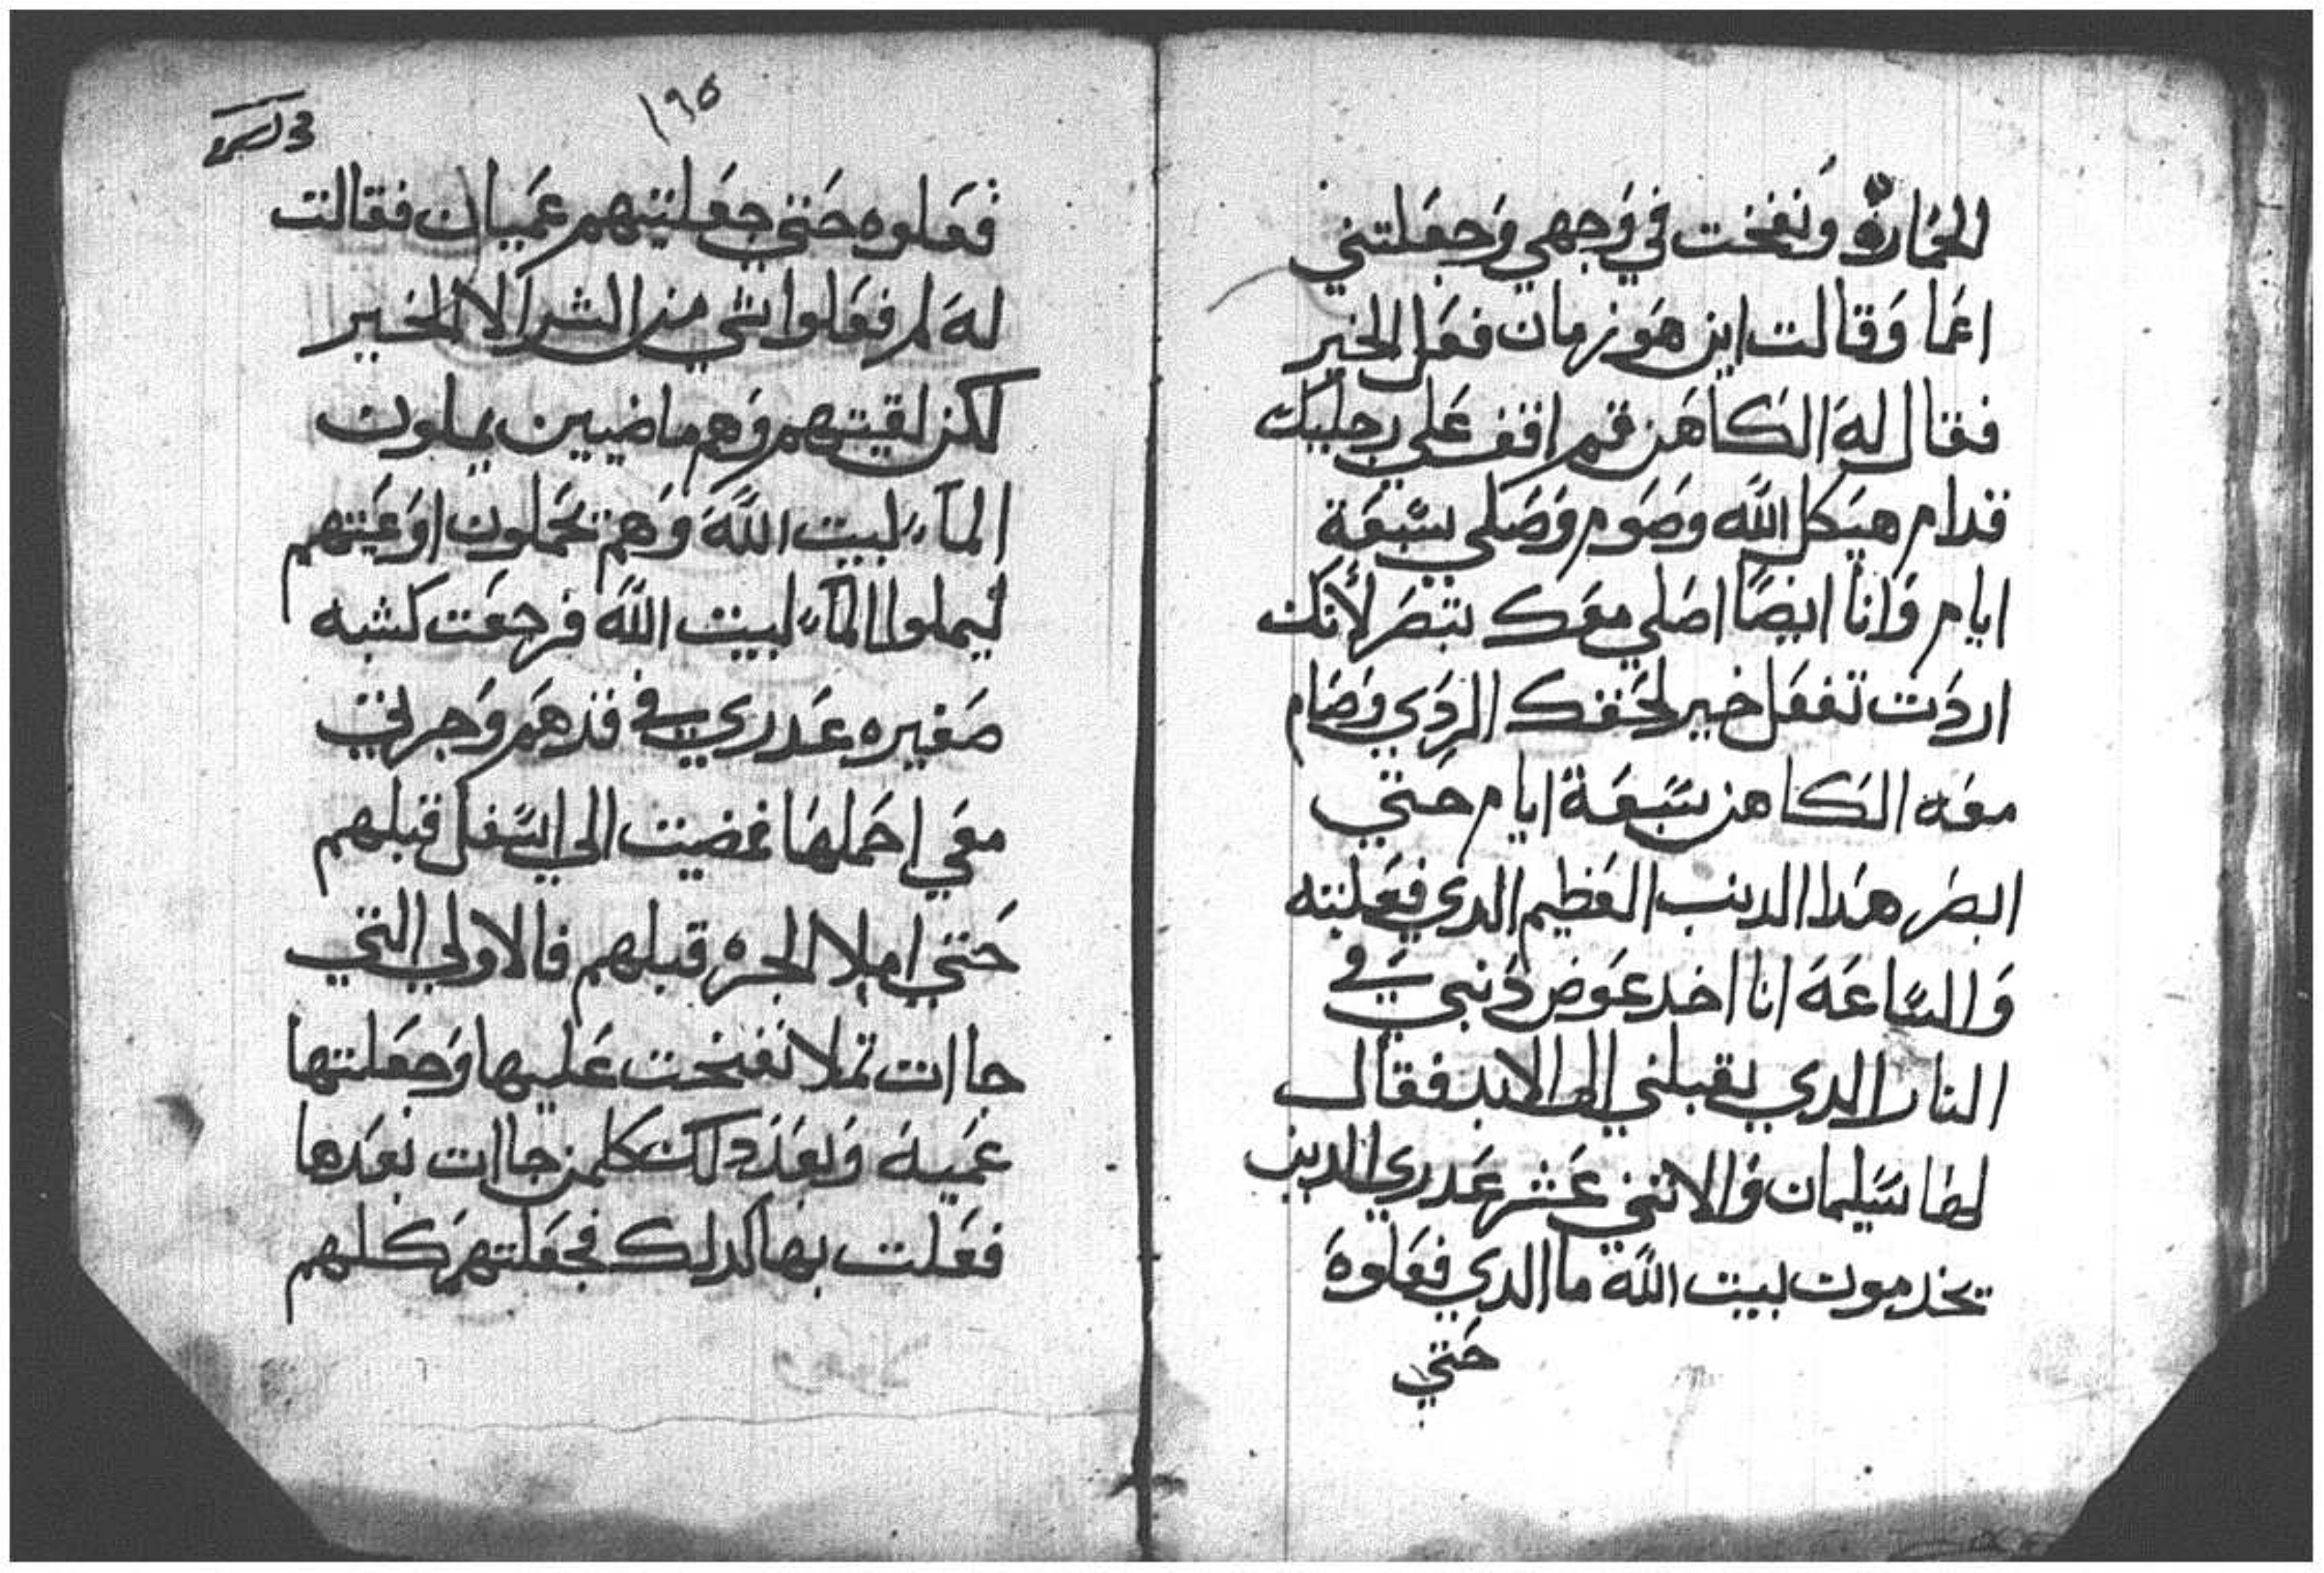 الخمارة ونفخت في وَجهي وَجعَلتني
اعَما وَقالت اين هَو زمان فعَل الخير
فقال لهَ الكاهَن قم اقف عَلي رجليك
قدام هيَكل اللَه وصَوم وَصَلي سَبعَة
ايام وَانا ايضًا اصَلي معَك تبصَر لأنَك
اردَت تفعَل خير لحَقك الردَي وَصَام
معَه الكاهن سَبعَة ايام حَتي
ابصَر هَدا الدنب العَظيم الدَي فعَلته
وَالسَاعَة انا اخد عَوض دَنبي في
النار الدي يقبلني الى الابد فقال
لها سَليمان وَالاتني عَشر عَدري الدين
يخدموت لبيت اللَه ما الدي فعَلوهَ
حَتي
١٩٥
فعَلوه حَتي جعَلتيهم عَميان فقالت
لهَ لم فعَلوا شي من الشر الا الخير
لكن لقيتهم وَهم ماضيين يملون
المآء لبيت اللَهَ وَهم يحَملون اوَعَيتهم
ليملوا المآء لبيت اللَه فرجعَت كشبه
صَغيره عَدري في قدهَم وَجرتي
معَي احَملهَا فمضيت الي اسَفل قبلهم
حَتي املا الجره قبلهم فالاولي التي
جاات تملا نفخت عَليها وَجعَلتها
عَميهَ وَبعَد دَلك كلمن جاات بعَدها
فعَلت بها كدلك فجعَلتهَم كلهم